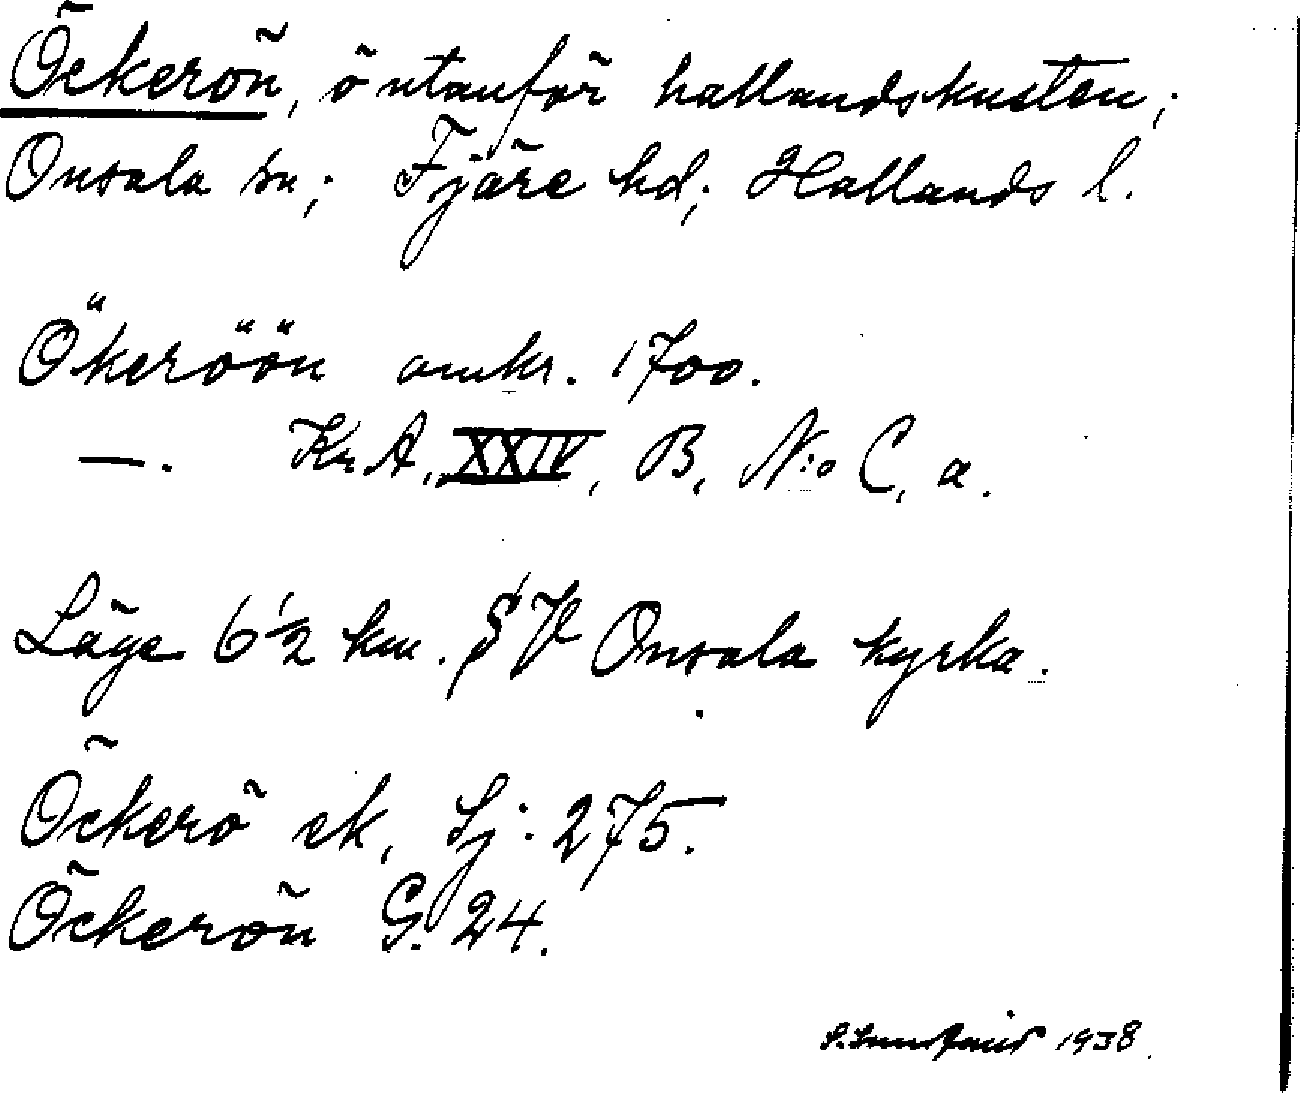 Öckerön, ö utanför hallandskusten;
Onsala sn; Fjäre hd; Hallands l.
Ökeröön omkr. 1700.
—. Kr. A., XXIV, B, N:o C, a.
Läge 6 ½ km. SV Onsala kyrka.
Öckerö ek, Sj: 275.
Öckerön G. 24.
1938